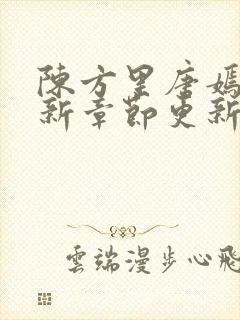 陳方星唐嫣
新章節更新
雲端漫步心飛